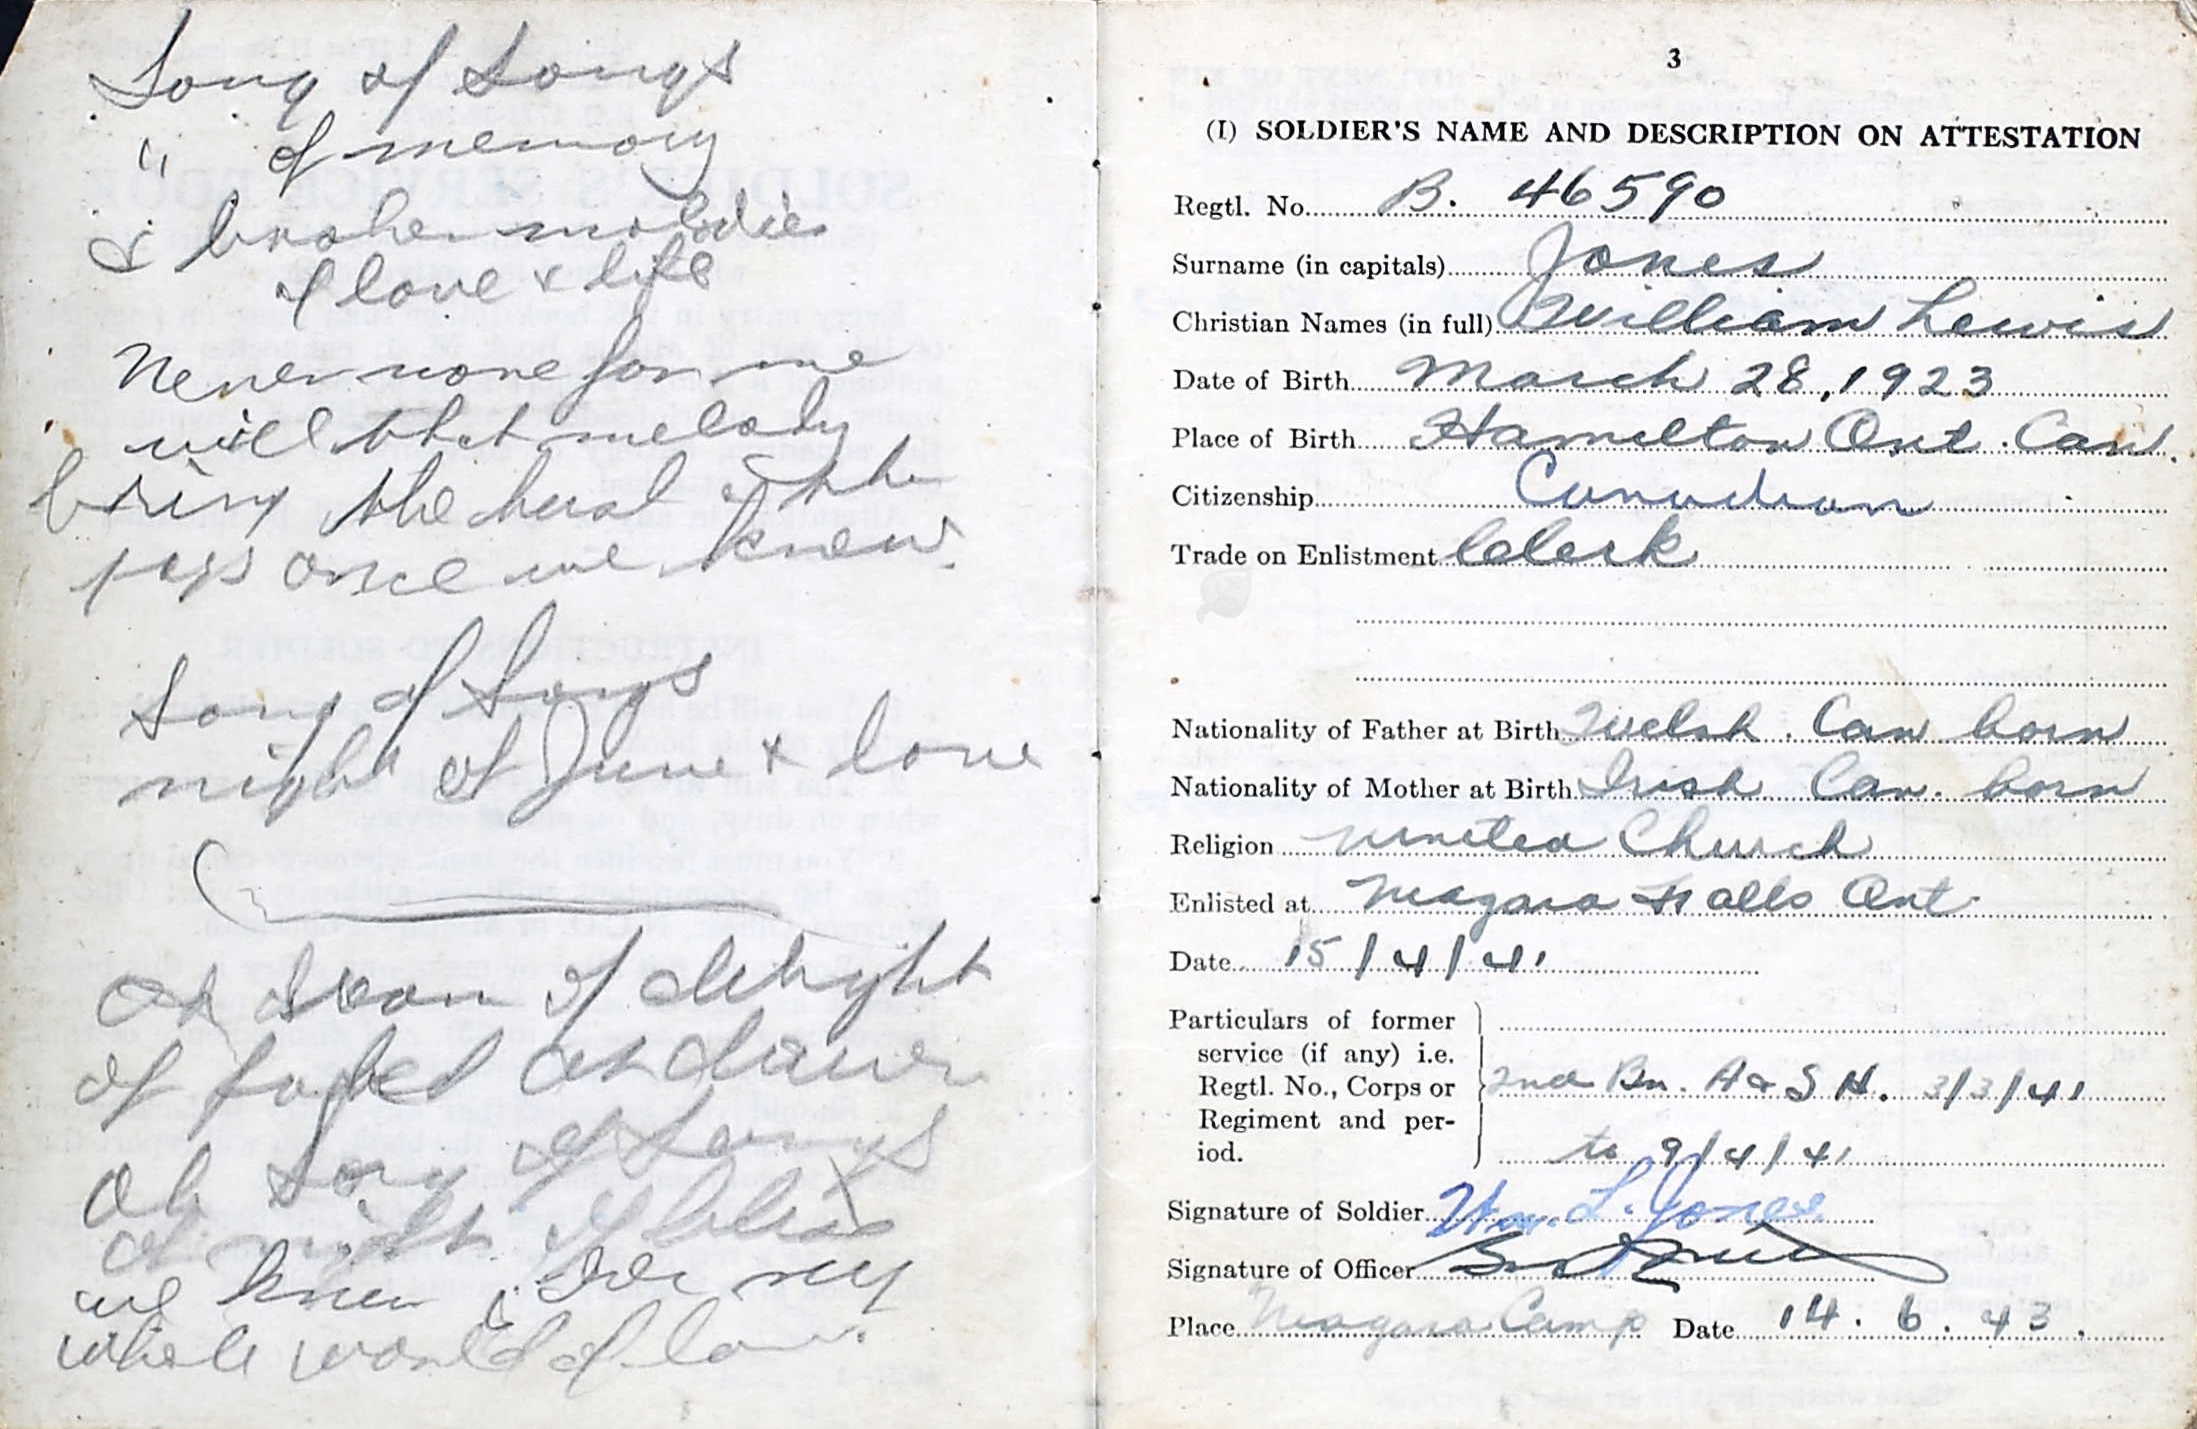 Song of Songs
" of memory
& broken melodies
of love & life
Never more for me
will that melody
bring the heart of the
joys once we knew.
Song of Songs
night of June & love
of delight
of
Oh Song of Songs
of night of bliss
we knew, for my
whole world of love.
3
(I) SOLDIER'S NAME AND DESCRIPTION ON ATTESTATION
Regtl. No. B. 46590
Surname (in capitals) Jones
Christian Names (in full) William Lewis
Date of Birth March 28, 1923
Place of Birth Hamilton Ont. Can.
Citizenship Canadian
Trade on Enlistment Clerk
Nationality of Father at Birth Welsh. Can born
Nationality of Mother at Birth Irish Can. born
Religion United Church
Enlisted at Niagara Falls Ont.
Date 15/4/41
Particulars of former
service (if any) i.e.
Regtl. No., Corps or 2nd Bn. A & S H. 3/3/41
Regiment and per-
iod. to 9/4/41
Signature of Soldier Wm. L. Jones
Signature of Officer
Place Niagara Camp Date 14.6.43.